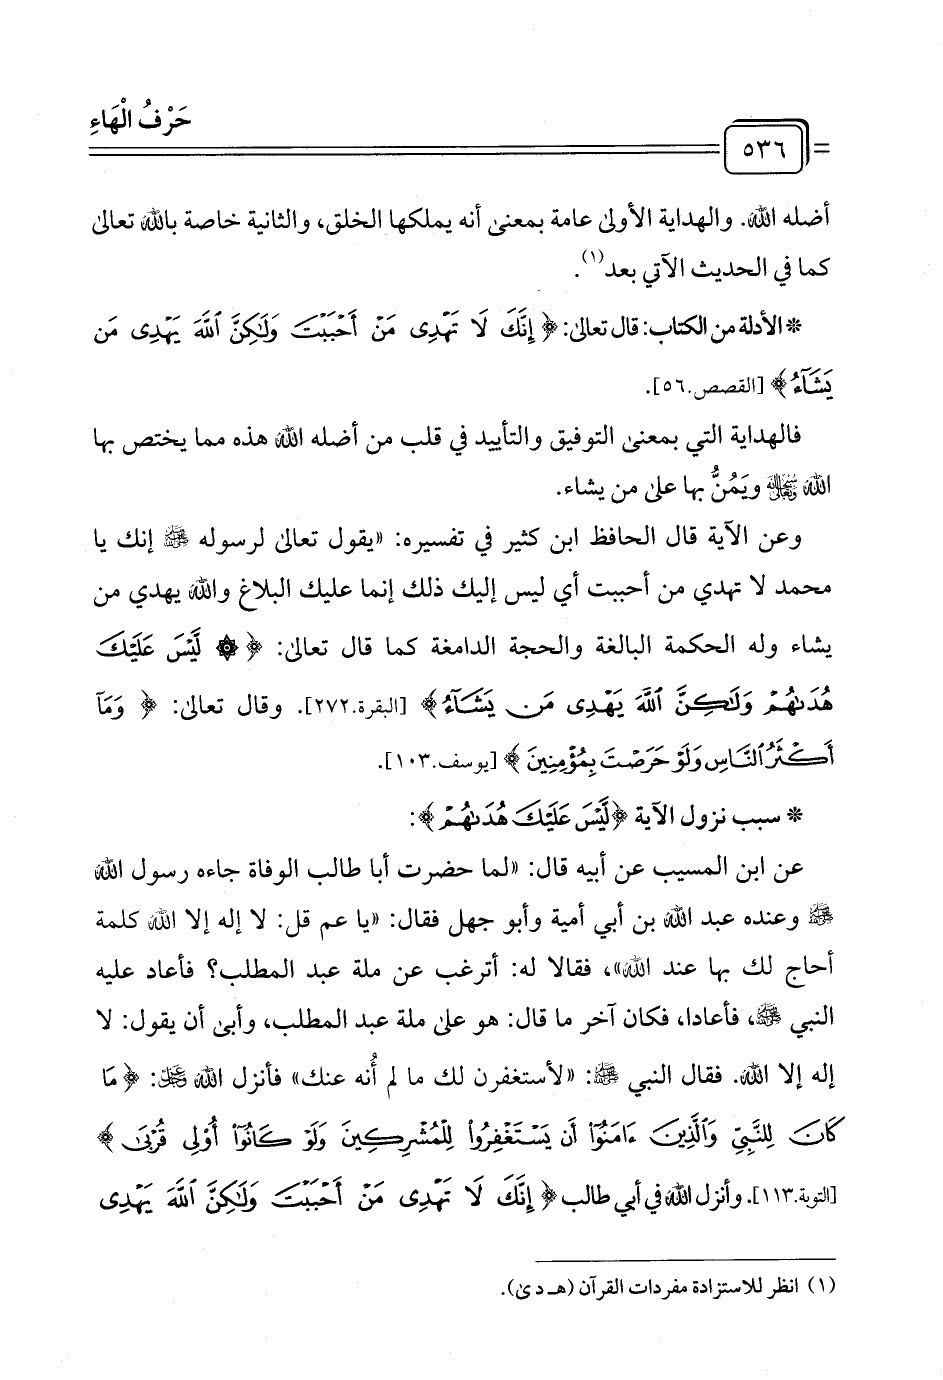 حَرْفُ الْهَاءِ
٥٣٦
أضله الله. والهداية الأولىٰ عامة بمعنىٰ أنه يملكها الخلق، والثانية خاصة بالله تعالىٰ
كما في الحديث الآتي بعد(١).
* الأدلة من الكتاب: قال تعالىٰ: ﴿ إِنَّكَ لَا تَهْدِى مَنْ أَحْبَبْتَ وَلَٰكِنَّ ٱللَّهَ يَهْدِى مَن
يَشَآءُ ﴾ [القصص.٥٦].
فالهداية التي بمعنىٰ التوفيق والتأييد في قلب من أضله الله هذه مما يختص بها
الله ويَمُنُّ بها علىٰ من يشاء.
وعن الآية قال الحافظ ابن كثير في تفسيره: «يقول تعالىٰ لرسوله ﷺ إنك يا
محمد لا تهدي من أحببت أي ليس إليك ذلك إنما عليك البلاغ والله يهدي من
يشاء وله الحكمة البالغة والحجة الدامغة كما قال تعالىٰ: ﴿ ۞ لَّيْسَ عَلَيْكَ
هُدَىٰهُمْ وَلَٰكِنَّ ٱللَّهَ يَهْدِى مَن يَشَآءُ ﴾ [البقرة.٢٧٢]. وقال تعالىٰ: ﴿ وَمَآ
أَكْثَرُ ٱلنَّاسِ وَلَوْ حَرَصْتَ بِمُؤْمِنِينَ ﴾ [يوسف.١٠٣].
* سبب نزول الآية ﴿لَّيْسَ عَلَيْكَ هُدَىٰهُمْ﴾:
عن ابن المسيب عن أبيه قال: «لما حضرت أبا طالب الوفاة جاءه رسول الله
ﷺ وعنده عبد الله بن أبي أمية وأبو جهل فقال: «يا عم قل: لا إله إلا الله كلمة
أحاج لك بها عند الله»، فقالا له: أترغب عن ملة عبد المطلب؟ فأعاد عليه
النبي ﷺ، فأعادا، فكان آخر ما قال: هو علىٰ ملة عبد المطلب، وأبىٰ أن يقول: لا
إله إلا الله. فقال النبي ﷺ: «لأستغفرن لك ما لم أُنه عنك» فأنزل الله ﷿: ﴿ مَا
كَانَ لِلنَّبِيِّ وَٱلَّذِينَ ءَامَنُوٓا۟ أَن يَسْتَغْفِرُوا۟ لِلْمُشْرِكِينَ وَلَوْ كَانُوٓا۟ أُو۟لِى قُرْبَىٰ ﴾
[التوبة.١١٣]. وأنزل الله في أبي طالب ﴿ إِنَّكَ لَا تَهْدِى مَنْ أَحْبَبْتَ وَلَٰكِنَّ ٱللَّهَ يَهْدِى
(١) انظر للاستزادة مفردات القرآن (هـ د ىٰ).